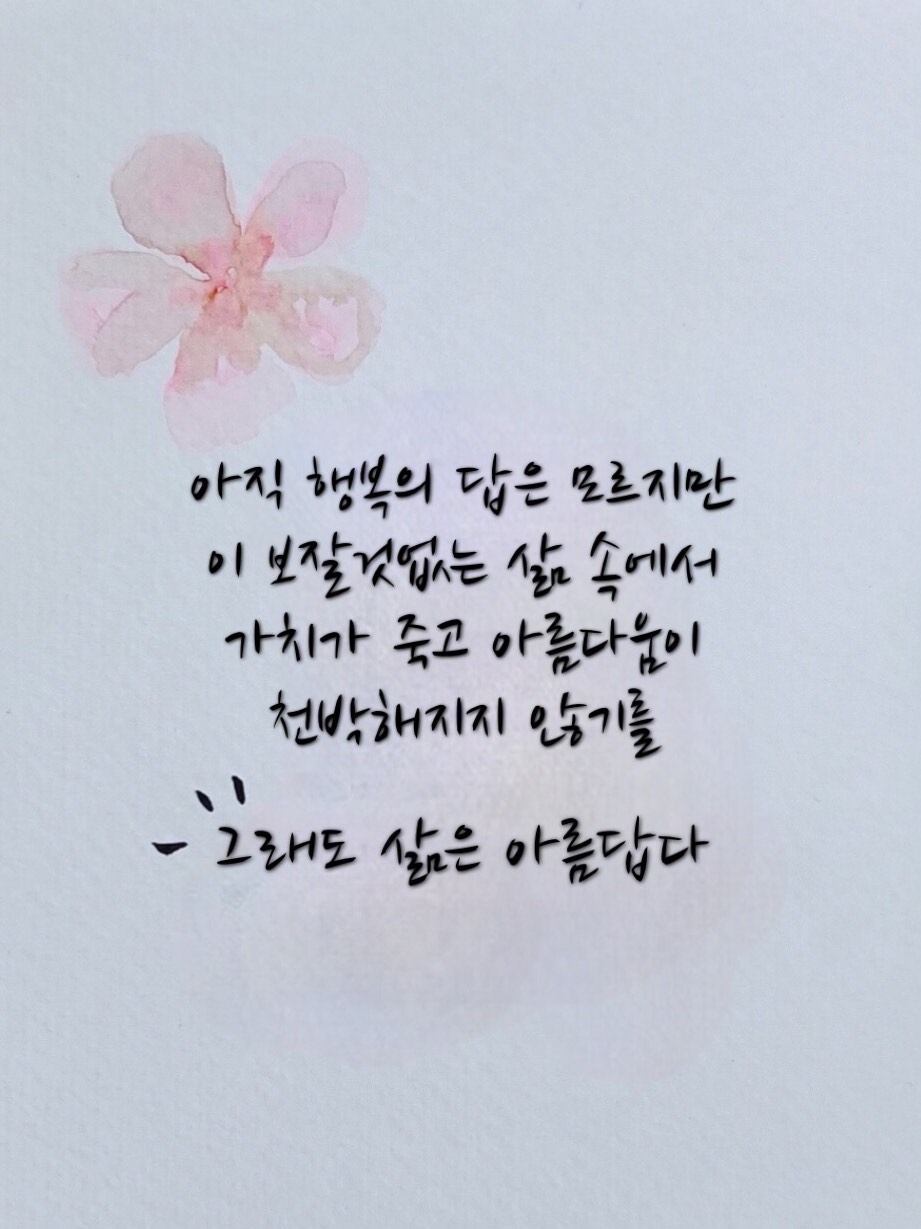 아직 행복의 답은 모르지만
이 보잘것없는 삶 속에서
가치가 죽고 아름다움이
천박해지지 않기를
그래도 삶은 아름답다